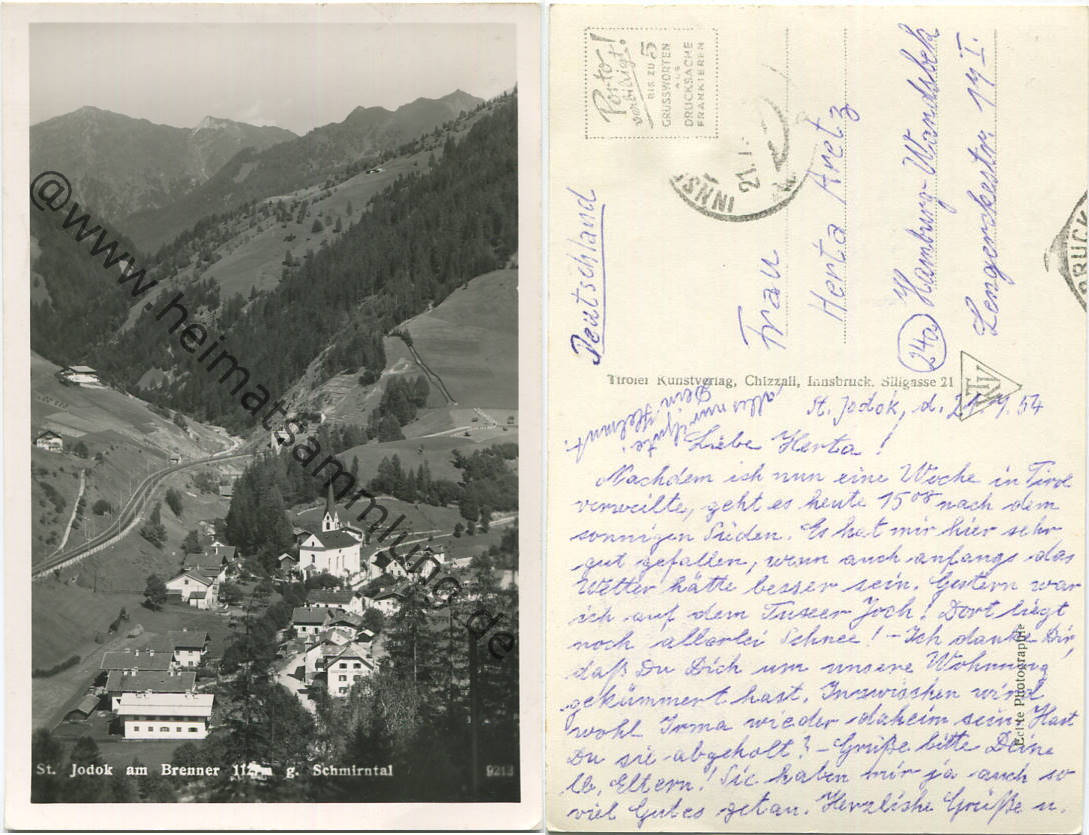 @www.heimatsammlung.de
St. Jodok am Brenner 1127m g. Schmirntal
9213
Porto
verbilligt!
BIS ZU 5
GRUSSWORTEN
ALS
DRUCKSACHE
FRANKIEREN
INNSBRUCK
21.
Frau
Herta Aretz
(24a) Hamburg-Wandsbek
Lengerckestr 19 I.
Deutschland
Tiroler Kunstverlag, Chizzali, Innsbruck, Sillgasse 21
TKV
Echte Photographie
St. Jodok, d. 21.7.54
Liebe Herta!
Nachdem ich nun eine Woche in Tirol
verweilte, geht es heute 15 08 nach dem
sonnigen Süden. Es hat mir hier sehr
gut gefallen, wenn auch anfangs das
Wetter hätte besser sein. Gestern war
ich auf dem Tuxer Joch! Dort liegt
noch allerlei Schnee! - Ich danke Dir,
daß Du Dich um unsere Wohnung
gekümmert hast. Inzwischen wird
wohl Irma wieder daheim sein. Hast
Du sie abgeholt? - Grüße bitte Deine
lb. Eltern! Sie haben mir ja auch so
viel Gutes getan. Herzliche Grüße u.
alles nur Gute
Dein Helmut.